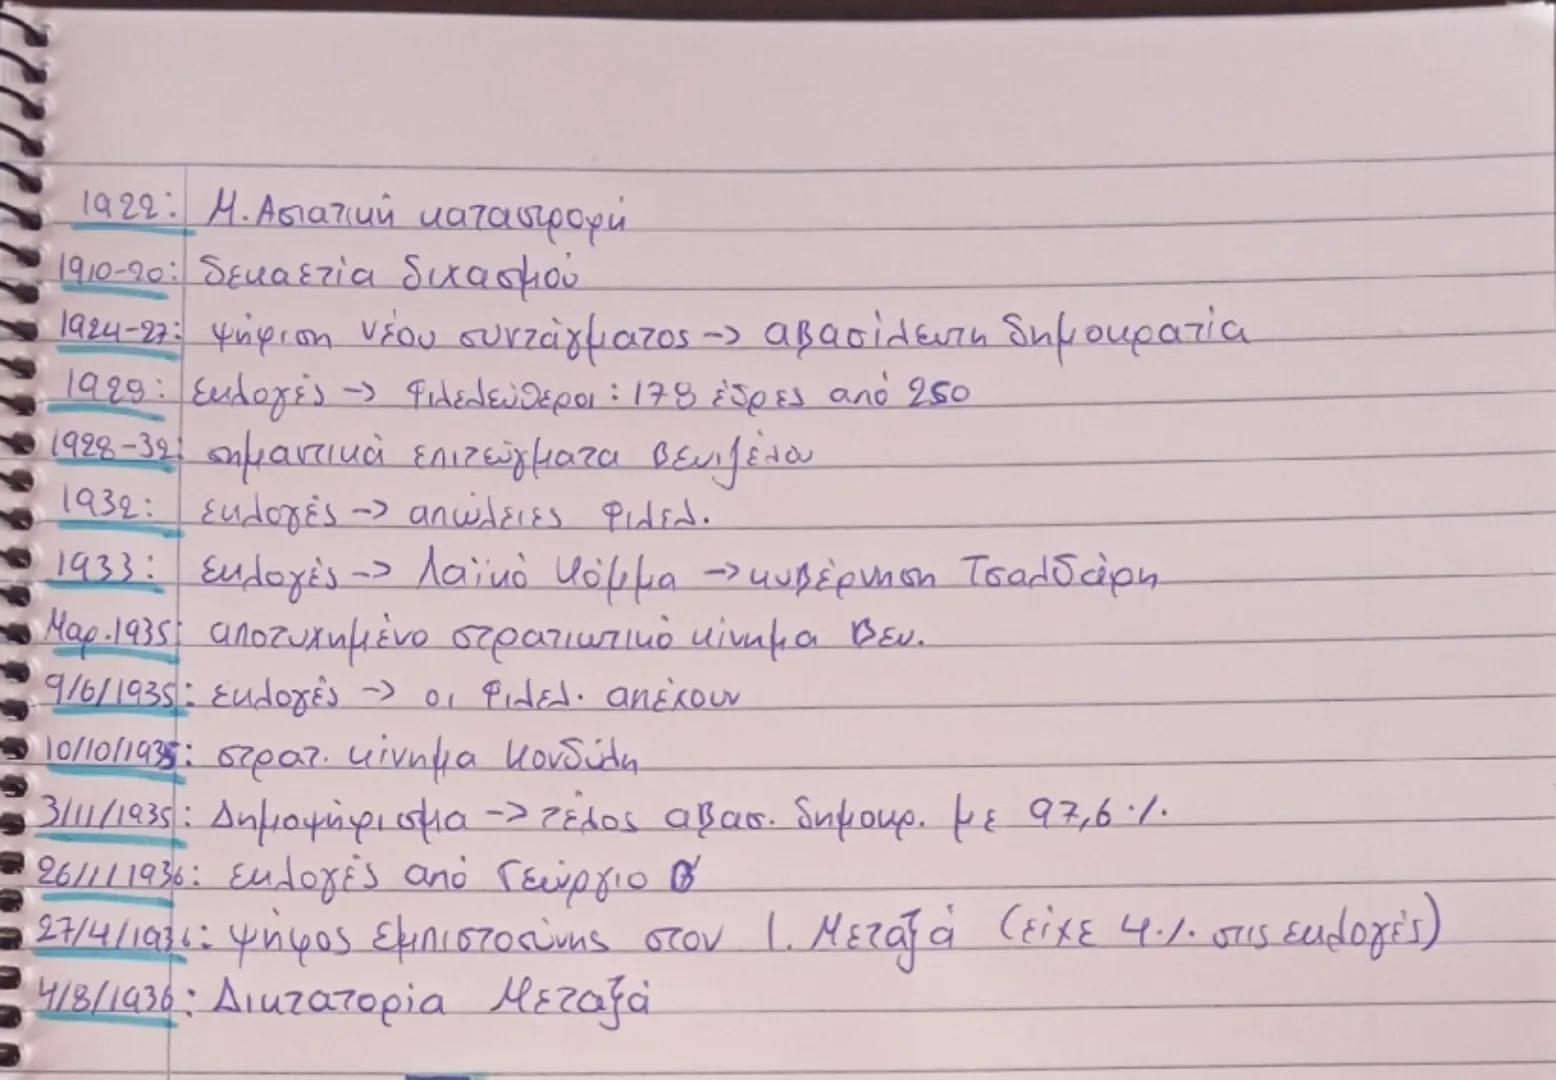 1922: Μ. Ασιατική καταστροφή
1910-20: δεκαετία διχασμού
1924-27: ψήφιση νέου συντάγματος -> αβασίλευτη δημοκρατία
1929: εκλογές -> Φιλελεύθεροι : 178 έδρες από 250
1928-32: σημαντικά επιτεύγματα Βενιζέλου
1932: εκλογές -> απώλειες Φιλελ.
1933: εκλογές -> Λαϊκό Κόμμα -> κυβέρνηση Τσαλδάρη
Μαρ.1935: αποτυχημένο στρατιωτικό κίνημα Βεν.
9/6/1935: εκλογές -> οι Φιλελ. απέχουν
10/10/1935: στρατ. κίνημα Κονδύλη
3/11/1935: Δημοψήφισμα -> τέλος αβασ. δημοκρ. με 97,6 %.
26/1/1936: εκλογές από Γεώργιο Β'
27/4/1936: ψήφος εμπιστοσύνης στον Ι. Μεταξά (είχε 4% στις εκλογές)
4/8/1936: Δικτατορία Μεταξά